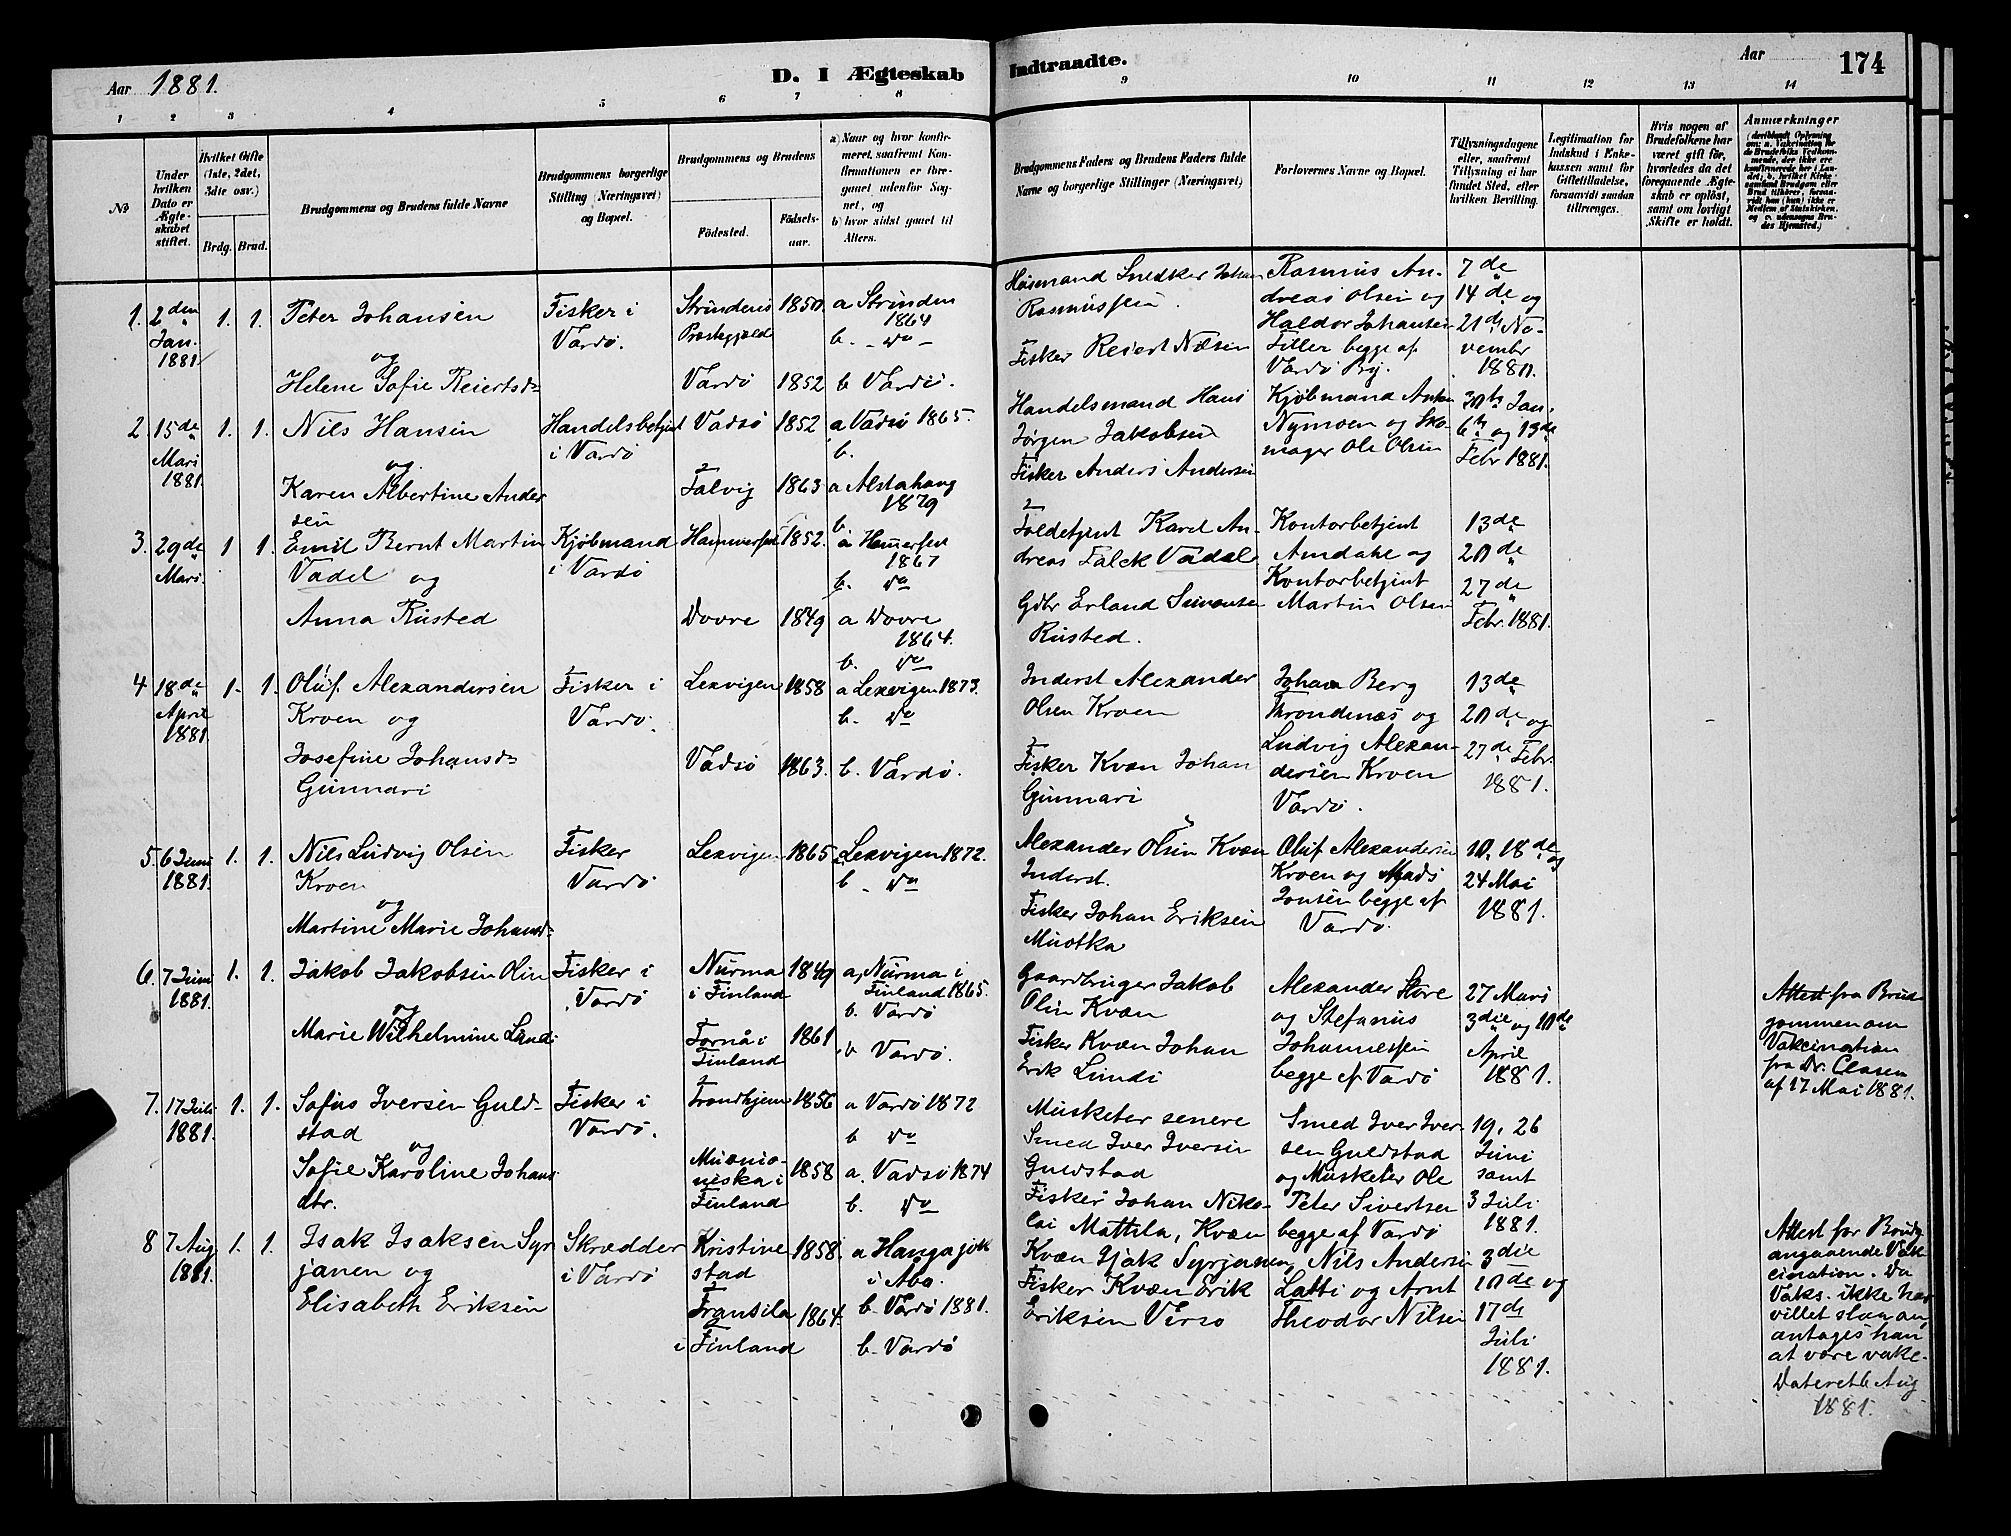 Aar 1881.
D. I Ægteskab
Indtraadte.
Aar
174
1 2 3 4 5 6 7 8 9 10 11 12 13 14
No
Under hvilken Dato er Ægteskabet stiftet.
Hvilket Gifte (1ste, 2det, 3die osv.)
Brdg. Brud.
Brudgommens og Brudens fulde Navne
Brudgommens borgerlige Stilling (Næringsvei) og Bopæl.
Brudgommens og Brudens
Födested.
Födselsaar.
a) Naar og hvor konfirmeret, saafremt Konfirmationen er foregaaet udenfor Sognet, og
b) hvor sidst gaaet til Alters.
Brudgommens Faders og Brudens Faders fulde Navne og borgerlige Stillinger (Næringsvei)
Forlovernes Navne og Bopæl.
Tillysningsdagene eller, saafremt Tillysning ei har fundet Sted, efter hvilken Bevilling.
Legitimation for Indskud i Enkekassen samt for Giftetilladelse, forsaavidt saadan tiltrænges.
Hvis nogen af Brudefolkene har været gift för, hvorledes da det foregaaende Ægteskab er oplöst, samt om lovligt Skifte er holdt.
Anmærkninger
1. 2den Jan. 1881 1. 1.
Peter Johansen
og
Helene Sofie Reiertsd.
Fisker i
Vardö.
Strindens
Præstegjæld 1850.
Vardö 1852
a Strinden
1864
b. - do -
b Vardö.
Husmand Snedker Johan
Rasmussen.
Fisker Reiert Nilsen
Rasmus An-
dreas Olsen og
Haldor Johansen
Tiller begge af
Vardö By.
7de
14de og
21de No-
vembr
1880.
2. 15de Mars 1881. 1. 1.
Nils Hansen
og
Karen Albertine Ander
sen
Handelsbetjent
i Vardö
Vadsö 1852
Talvig 1863
a Vadsö 1865.
b.
a Alstahaug
1879
b.
Handelsmand Hans
Jörgen Jakobsen
Fisker Anders Andersen
Kjöbmand Anton
Nymoen og Sko-
mager Ole Olsen
30te Jan.
6te og 13de
Febr 1881.
3. 29de Mars. 1 1.
Emil Bernt Martin
Vadel og
Anna Rusted
Kjöbmand
i Vardö
Hammerfest 1852.
Dovre 1849
a Hamerfest
1867
b. do
a Dovre
1864.
b. do
Toldbetjent Karel An-
dreas Falck Vadel
Gdbr Erland Simensen
Rusted.
Kontorbetjent
Amdahl og
Kontorbetjent
Martin Olsen
13de
20de
27de
Febr. 1881.
4 18de April 1881 1. 1.
Oluf Alexandersen
Kroen og
Josefine Johansd.
Gunnari
Fisker i
Vardö.
Lexvigen 1858
Vadsö 1863.
a Lexvigen 1873.
b. do
b. Vardö.
Inderst Alexander
Olsen Kroen
Fisker Kvæn Johan
Gunnari
Johan Berg
Throndenæs og
Ludvig Alexan-
dersen Kroen
Vardö.
13de
20de og
27de Febr.
1881.
5. 6 Juni 1881. 1. 1.
Nils Ludvig Olsen
Kroen
og
Martine Marie Johansd.
Fisker
Vardö
Lexvigen 1865
a Lexvigen 1872.
b - do
Alexander Olsen Kvæn
Inderst.
Fisker Johan Eriksen
Muotka
Oluf Alexandersen
Kroen og Mads
Jonsen begge af
Vardö.
10, 18de og
24 Mai
1881.
6. 7 Juni 1881. 1. 1.
Jakob Jakobsen Olin
og
Marie Wilhelmine Lundi
Fisker i
Vardö
Nurma
i Finland 1849
Tornå i
Finland 1861
a, Nurma i
Finland 1865.
b. Vardö
b Vardö.
Gaardbruger Jakob
Olin Kvæn
Fisker Kvæn Johan
Erik Lundi
Alexander Store
og Stefanus
Johannessen
begge af Vardö
27 Mars
3die og 10de
April
1881.
Attest fra Brud
gommen om
Vakcination
fra Dr. Clasen
af 17 Mai 1881.
7. 17 Juli 1881. 1. 1.
Sofus Iversen Guld-
stad
og
Sofie Karoline Johans
dtr.
Fisker i
Vardö.
Trondhjem 1856
Muonio-
niska i
Finland 1858
a Vardö 1872
b do
a. Vadsö 1874
b. do
Musketer senere
Smed Iver Iversen
Guldstad
Fisker Johan Niko-
lai Mattila, Kvæn
Smed Iver Iver-
sen Guldstad
og Musketer Ole
Peter Sivertsen
begge af Vardö
19, 26
Juni
samt
3 Juli
1881.
8 7 Aug 1881. 1. 1.
Isak Isaksen Syr
janen og
Elisabeth Eriksen
Skrædder
i Vardö
Kristine
stad 1858.
Fransila
i Finland 1864.
a Hangajok
i Åbo.
b. Vardö 1881.
b. Vardö
Kvæn Isak Syrjanen,
Fisker Kvæn Erik
Eriksen Verso
Nils Andersen
Latti og Arnt
Theodor Nilsen
3die
10de og
17de
Juli
1881.
Attest for Brudg
angaaende Vak
cination. Da
Vaks. ikke har
villet slaa an,
antages han
at være vakc.
Dateret 6 Aug
1881.